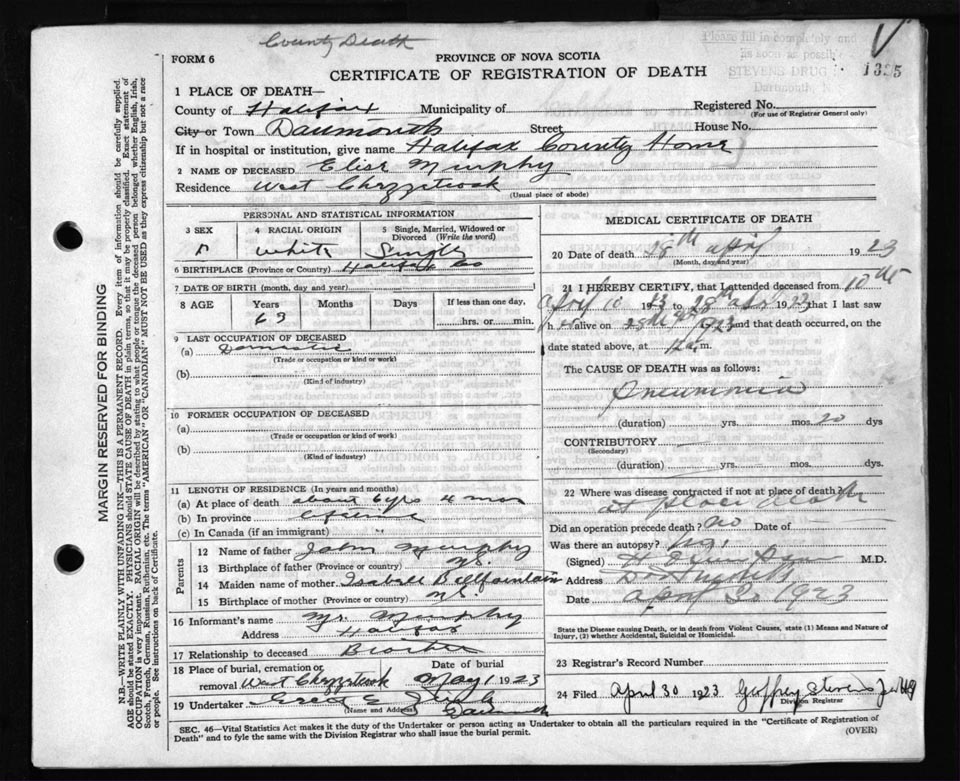 County Death
Please fill in completely and
as soon as possible
STEVENS DRUG
Dartmouth, N
V
1325
FORM 6
PROVINCE OF NOVA SCOTIA
CERTIFICATE OF REGISTRATION OF DEATH
1 PLACE OF DEATH—
County of Halifax Municipality of Registered No.
(For use of Registrar General only)
City or Town Street House No.
If in hospital or institution, give name Halifax County Home
2 NAME OF DECEASED Murphy
Residence West Chezzetcook
(Usual place of abode)
PERSONAL AND STATISTICAL INFORMATION
3 SEX 4 RACIAL ORIGIN 5 Single, Married, Widowed or
Divorced (Write the word)
White Single
6 BIRTHPLACE (Province or Country) Halifax Co
7 DATE OF BIRTH (month, day and year)
8 AGE Years Months Days If less than one day,
63 hrs. or min.
9 LAST OCCUPATION OF DECEASED
(a) Domestic
(Trade or occupation or kind of work)
(b)
(Kind of industry)
10 FORMER OCCUPATION OF DECEASED
(a)
(Trade or occupation or kind of work)
(b)
(Kind of industry)
11 LENGTH OF RESIDENCE (In years and months)
(a) At place of death about 6 yrs 4 mos
(b) In province
(c) In Canada (if an immigrant) "
Parents
12 Name of father John Murphy
13 Birthplace of father (Province or country) N.S.
14 Maiden name of mother Isabell Bellfountain
15 Birthplace of mother (Province or country) N.S.
16 Informant's name Murphy
Address Halifax
17 Relationship to deceased Brother
18 Place of burial, cremation or Date of burial
removal West Chezzetcook May 1 1923
19 Undertaker
(Name and Address)
MEDICAL CERTIFICATE OF DEATH
20 Date of death April 1923
(Month, day and year)
21 I HEREBY CERTIFY, that I attended deceased from 10th
April 10 23 to 28th 1923 that I last saw
h alive on 28th 1923 and that death occurred, on the
date stated above, at 12 a.m.
The CAUSE OF DEATH was as follows:
Pneumonia
(duration) yrs. mos. 20 dys
CONTRIBUTORY
(Secondary)
(duration) yrs. mos. dys.
22 Where was disease contracted if not at place of death?
at place death
Did an operation precede death? no Date of
Was there an autopsy? no
(Signed) M.D.
Address
Date April 1923
State the Disease causing Death, or in death from Violent Causes, state (1) Means and Nature of
Injury, (2) whether Accidental, Suicidal or Homicidal.
23 Registrar's Record Number
24 Filed April 30 1923 Geffrey Stevens
Division Registrar
SEC. 46—Vital Statistics Act makes it the duty of the Undertaker or person acting as Undertaker to obtain all the particulars required in the "Certificate of Registration of
Death" and to fyle the same with the Division Registrar who shall issue the burial permit.
(OVER)
MARGIN RESERVED FOR BINDING
N.B.—WRITE PLAINLY WITH UNFADING INK—THIS IS A PERMANENT RECORD. Every item of information should be carefully supplied.
AGE should be stated EXACTLY. PHYSICIANS should STATE CAUSE OF DEATH in plain terms, so that it may be properly classified. Exact statement of
OCCUPATION is very important. RACIAL ORIGIN will be described by stating to what people or tongue the deceased person belonged whether English, Irish,
Scotch, French, German, Russian, Ruthenian, etc. The terms "AMERICAN" OR "CANADIAN" MUST NOT BE USED as they express citizenship but not a race
or people. See instructions on back of Certificate.